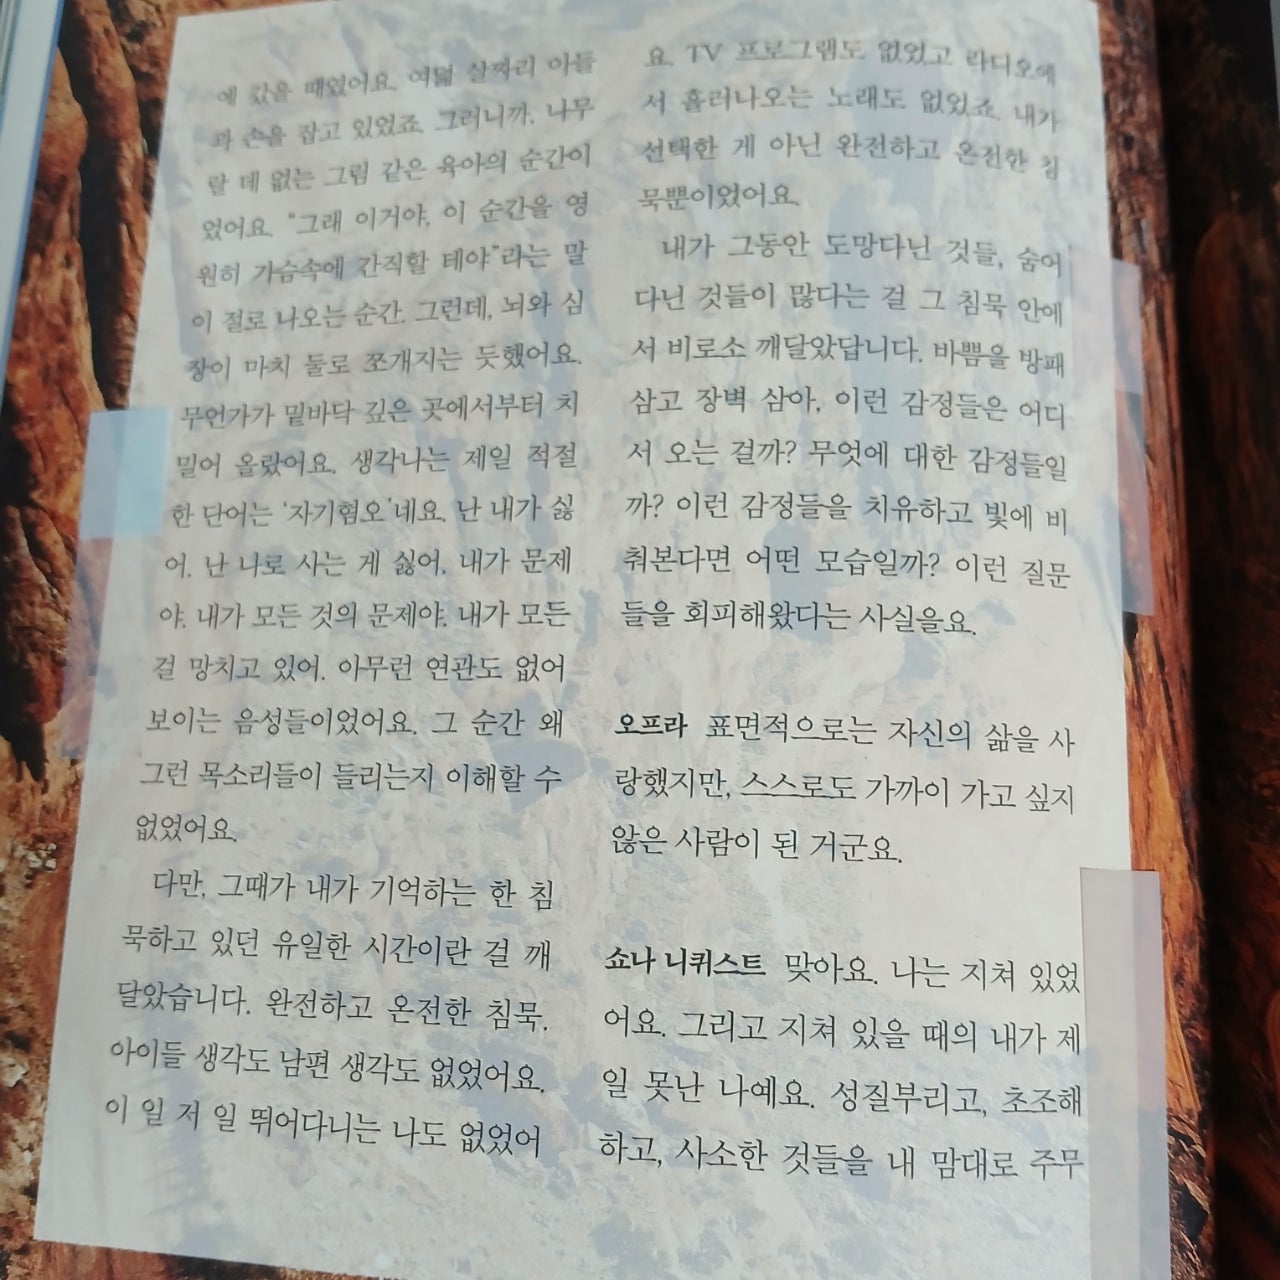 에 갔을 때였어요. 여덟 살짜리 아들
과 손을 잡고 있었죠. 그러니까, 나무
랄 데 없는 그림 같은 육아의 순간이
었어요. “그래 이거야, 이 순간을 영
원히 가슴속에 간직할 테야”라는 말
이 절로 나오는 순간. 그런데, 뇌와 심
장이 마치 둘로 쪼개지는 듯했어요.
무언가가 밑바닥 깊은 곳에서부터 치
밀어 올랐어요. 생각나는 제일 적절
한 단어는 ‘자기혐오’네요. 난 내가 싫
어. 난 나로 사는 게 싫어. 내가 문제
야. 내가 모든 것의 문제야. 내가 모든
걸 망치고 있어. 아무런 연관도 없어
보이는 음성들이었어요. 그 순간 왜
그런 목소리들이 들리는지 이해할 수
없었어요.
다만, 그때가 내가 기억하는 한 침
묵하고 있던 유일한 시간이란 걸 깨
달았습니다. 완전하고 온전한 침묵.
아이들 생각도 남편 생각도 없었어요.
이 일 저 일 뛰어다니는 나도 없었어
요. TV 프로그램도 없었고 라디오에
서 흘러나오는 노래도 없었죠. 내가
선택한 게 아닌 완전하고 온전한 침
묵뿐이었어요.
내가 그동안 도망다닌 것들, 숨어
다닌 것들이 많다는 걸 그 침묵 안에
서 비로소 깨달았답니다. 바쁨을 방패
삼고 장벽 삼아, 이런 감정들은 어디
서 오는 걸까? 무엇에 대한 감정들일
까? 이런 감정들을 치유하고 빛에 비
춰본다면 어떤 모습일까? 이런 질문
들을 회피해왔다는 사실을요.
오프라 표면적으로는 자신의 삶을 사
랑했지만, 스스로도 가까이 가고 싶지
않은 사람이 된 거군요.
쇼나 니퀴스트 맞아요. 나는 지쳐 있었
어요. 그리고 지쳐 있을 때의 내가 제
일 못난 나예요. 성질부리고, 초조해
하고, 사소한 것들을 내 맘대로 주무